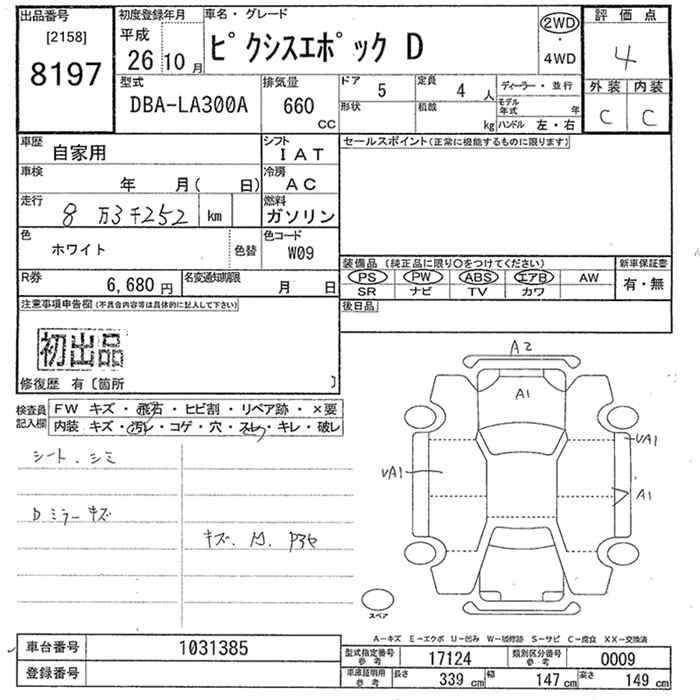 出品番号 初度登録年月 車名・グレード 評価点
[2158] 平成 2WD
8197 26 10月 ピクシスエポック D 4WD 4
型式 排気量 ドア 5 定員 4人 ディーラー・並行 外装 内装
DBA-LA300A 660 CC 形状 積載 kg モデル年式 年 C C
ハンドル 左・右
車歴 自家用 シフト IAT セールスポイント(正常に機能するものに限ります)
車検 年 月( 日) 冷房 AC
走行 8万3千252 km 燃料 ガソリン
色 ホワイト 色替 色コード W09
装備品 (純正品に限り○をつけてください) 新車保証書
PS PW ABS エアB AW 有・無
SR ナビ TV カワ
R券 6,680円 名変通知期限 月 日
後日品
注意事項申告欄(不具合内容等は具体的に記入して下さい)
初出品
修復歴 有〔箇所 〕
検査員記入欄 FW キズ・飛石・ヒビ割・リペア跡・×要
内装 キズ・汚レ・コゲ・穴・スレ・キレ・破レ
シート、シミ
Dミラーキズ
A2
A1
UA1
UA1
A1
スペア
A-キズ E-エクボ U-凹み W-補修跡 S-サビ C-腐食 XX-交換済
車台番号 1031385
登録番号
型式指定番号 参考 17124 類別区分番号 参考 0009
車庫証明用 参考 長さ 339cm 幅 147cm 高さ 149cm